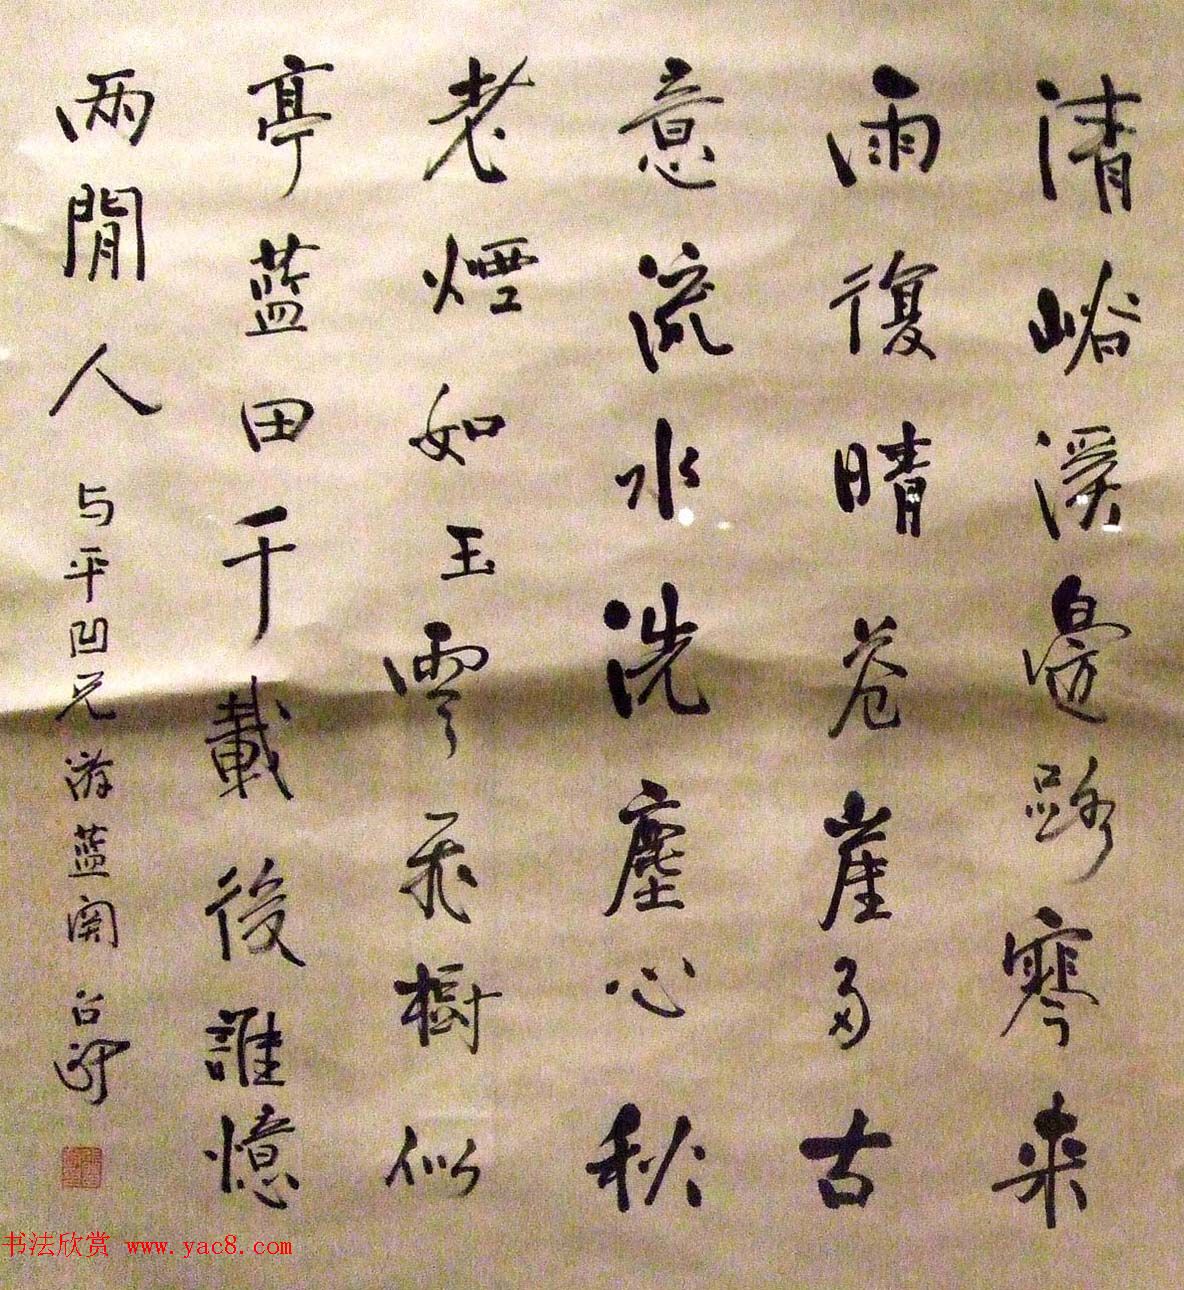 清峪溪邊路来
雨復晴蒼崖多古
意流水洗塵心秋
老煙如玉雲樹似
亭蓝田千載後誰憶
兩閒人
与平凹兄游蓝関
书法欣赏 www.yac8.com